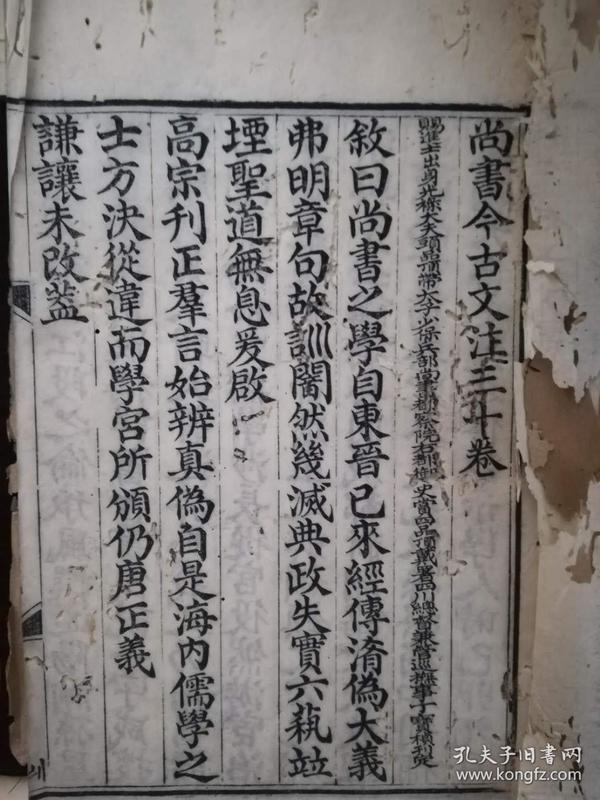 尚書今古文注三十卷
賜進士出身光祿大夫頭品頂帶太子少保兵部尚書都察院右都御史賞四品頂戴署四川總督兼管巡撫事丁寶楨刊定
敘曰尚書之學自東晉已來經傳淆偽大義
弗明章句故訓闇然幾滅典政失實六蓺竝
堙聖道無息爰啟
高宗刊正羣言始辨真偽自是海內儒學之
士方決從違而學宮所頒仍唐正義
謙讓未改蓋
孔夫子旧書网
www.kongfz.com